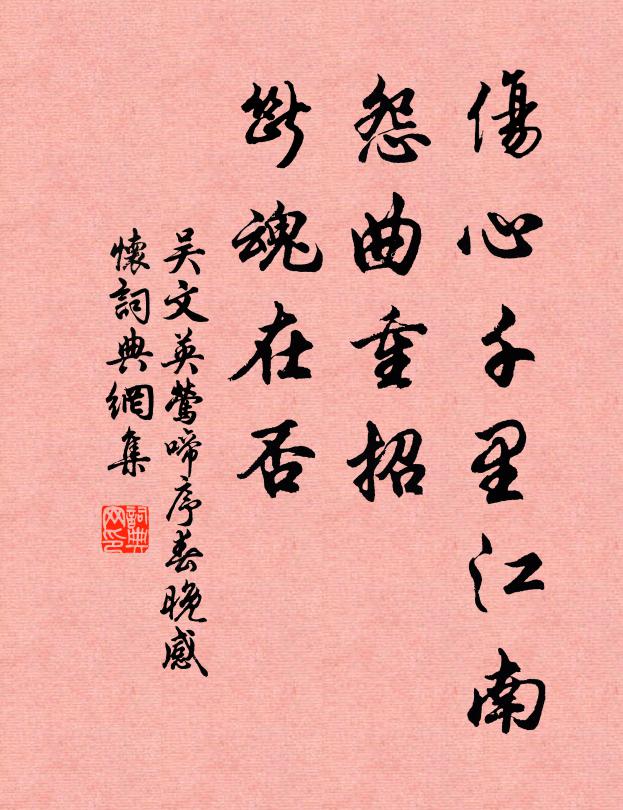 傷心千里江南
怨曲重招
斷魂在否
吴文英鶯啼序春晚感
懷詞典網集
詞典
网印